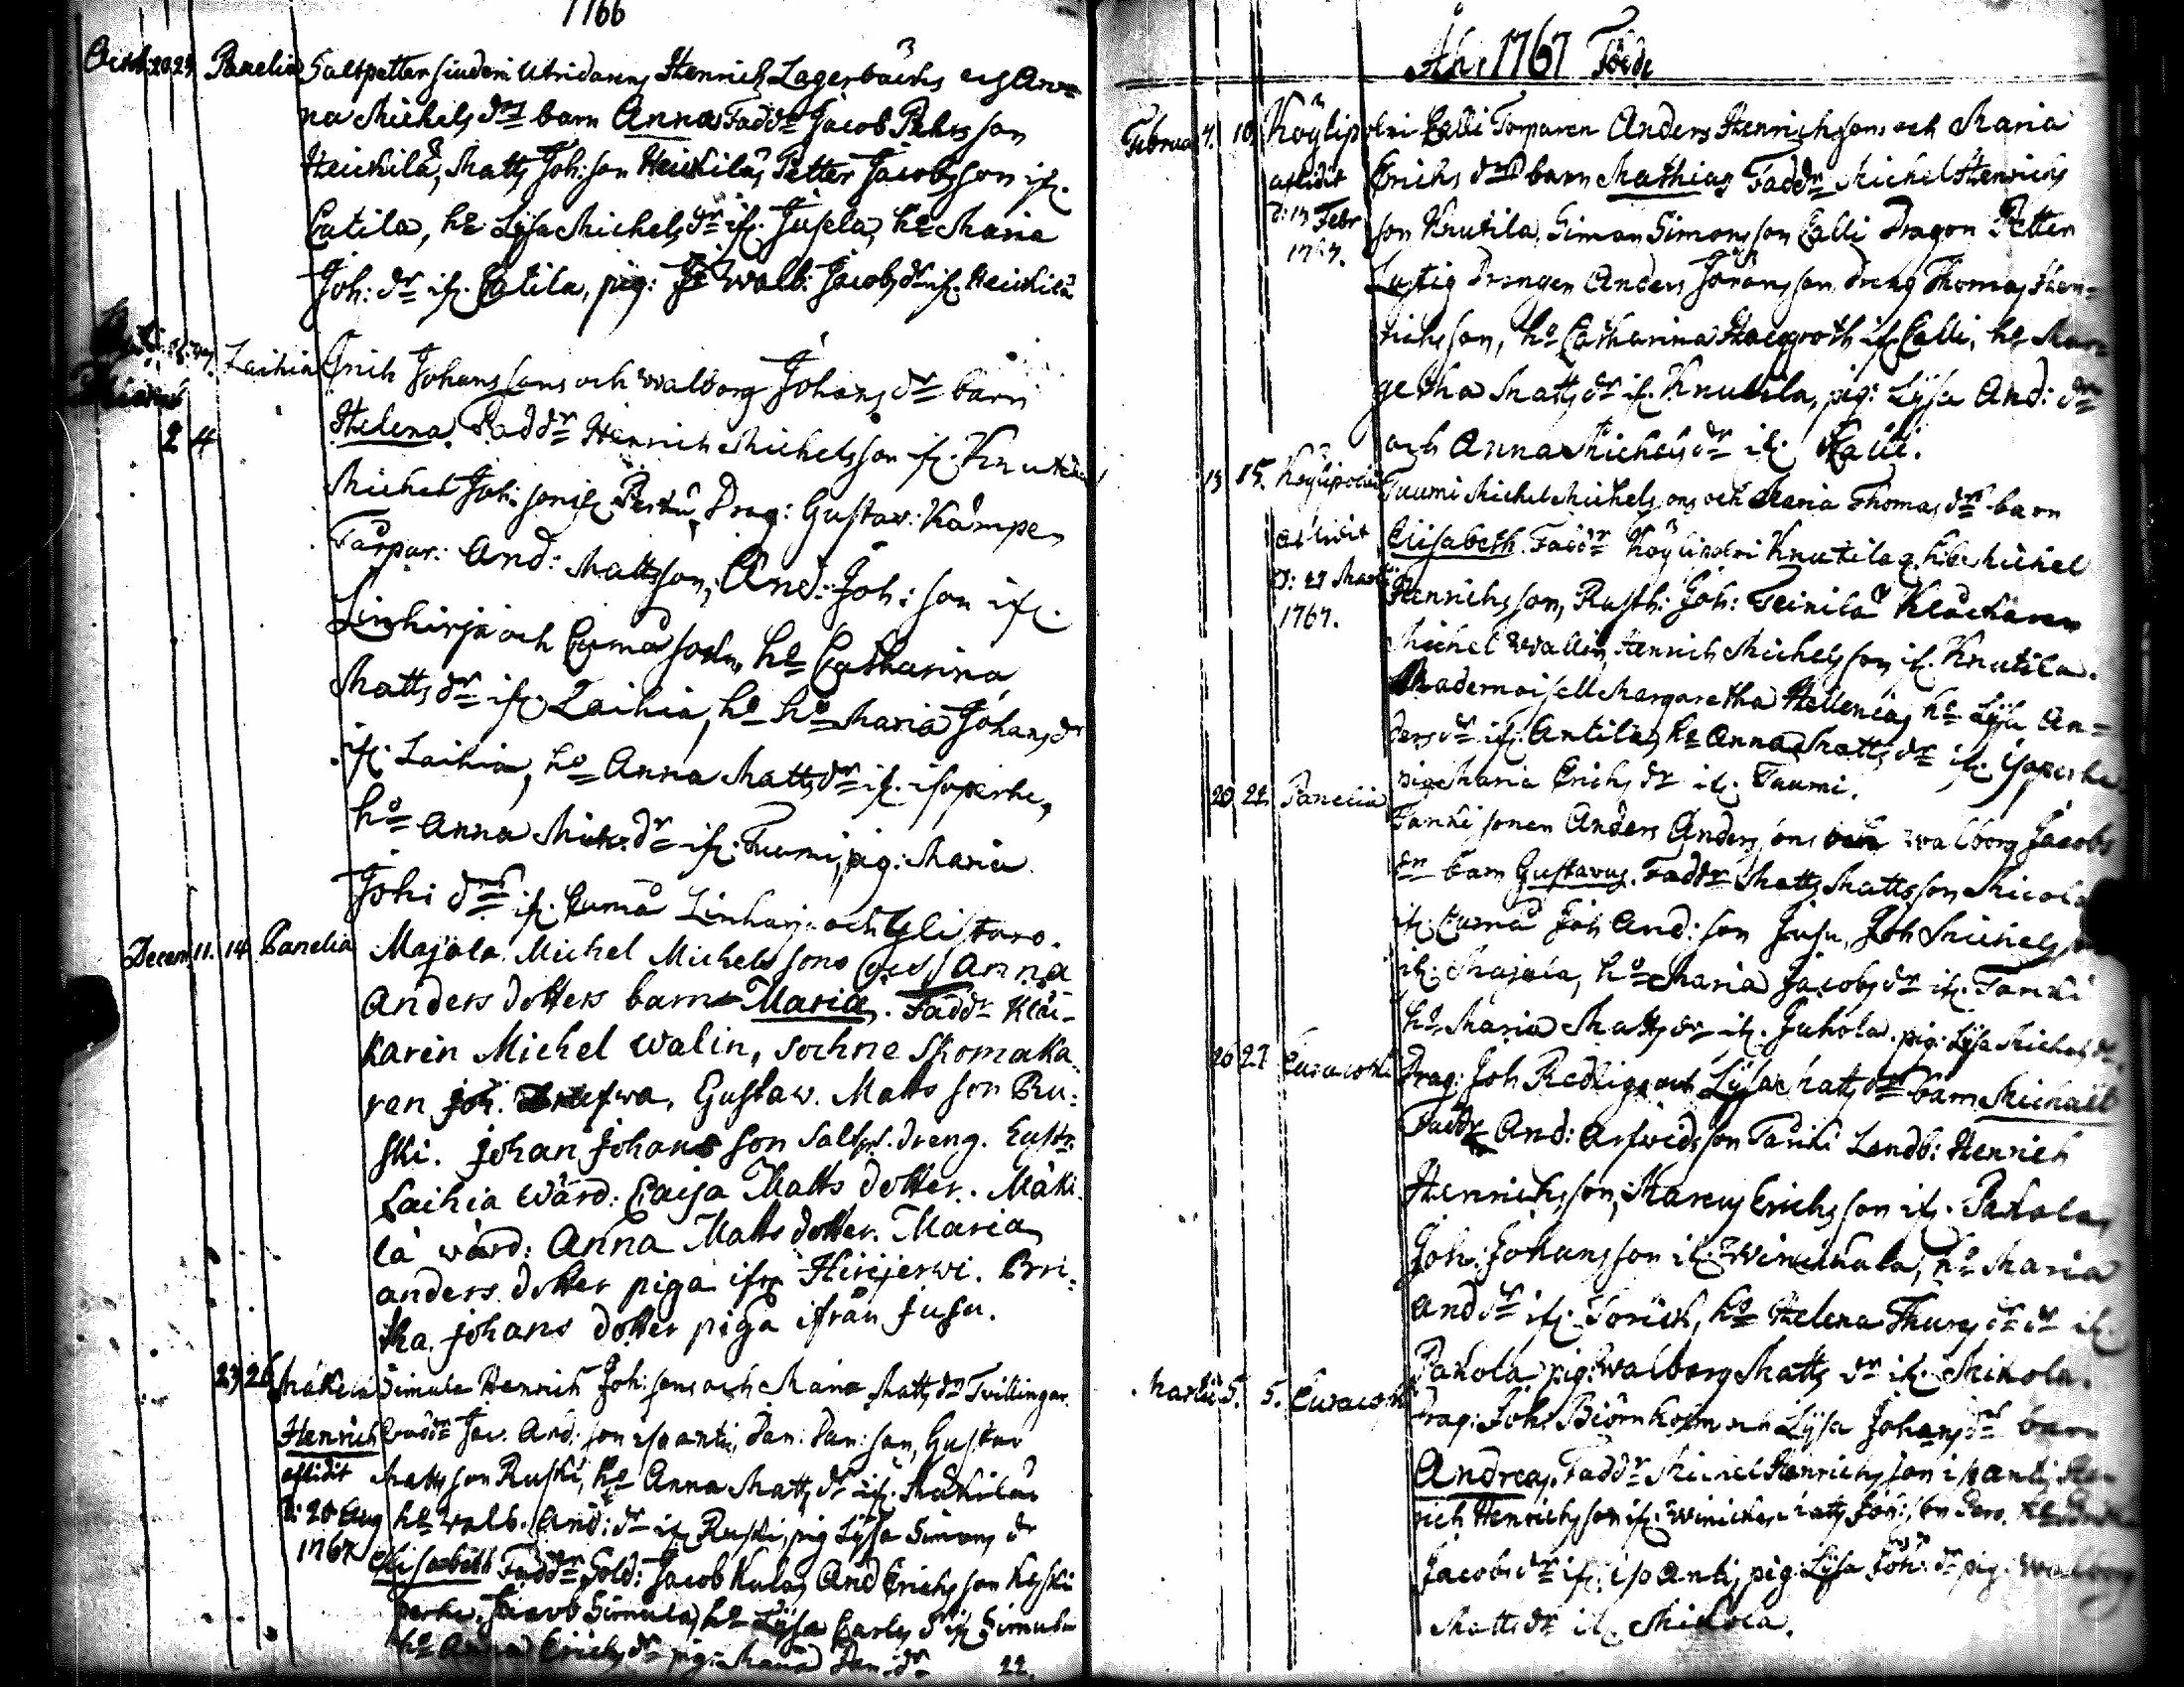 1766
Octob. 20. 24. Panelia Saltpetter siuderi Utridarens Henrich Lagerbäcks och An=
na Michels dr barn Anna Fadd:r Jacob Pehrs son
Heickilä, Matts Joh: son Heickilä, Petter Jacobs son if.
Catila, h:o Lijsa Michels dr if. Jusela, h:o Maria
Joh: dr if. Catila, pig: Walb: Jacobs dr if. Heickilä
Laihia Erich Johans sons och Walborg Johans dr barn
2 4 Helena. Fadd:r Henrich Michels son if. Knutila
Michel Joh: son if. Perttu, Drag: Gustav: Kämpe,
Torpar: And: Matts son, And: Joh: son if.
Linhirja och Eurnå sock, h:o Catharina
Matts dr if. Laihia, h:o Maria Johans dr
if. Laihia, h:o Anna Matts dr if. isoperhe,
h:o Anna Mich: dr if. Tuumi, pig: Maria
Joh: dr if. Linharja och
Decem. 11. 14. Panelia Majala Michel Michels sons och Anna
Anders dotters barn Maria. Fadd:r Kläc-
karen Michel Walin, sochne skomaka
ren Joh. Gustaw. Matts son Ru:
ski. Johan Johans son Saltps. dreng.
Laihia Wärd: Caisa Matts dotter. Mäki
lä wärd: Anna Matts dotter. Maria
anders dotter piga ifr. Hirijerwi. Bri:
tha. Johans dotter piga ifrån Jusu.
23 26 Mäkelä Simula Henrich Joh: sons och Maria Matts dr Tvillingar.
Henrich Fadd:r Jac. And: son isoantti, Dan: Dan: son, Gustav
aflidit Matts son Ruski, h:o Anna Matts dr if. Mäkilä
d: 20 Aug h:o Walb. And: dr if. Ruski, pig Lijsa Simons dr
1767 Elisabeth Fadd:r Sold: Jacob Kula, And Erichs son Keski
perhe, Jacob Simula, h:o Lijsa Carls d if Simula
h:o Anna Erichs dr pig: Maria Dan: dr
22.
Åhr 1767 Födde
Februa 7. 10. Köylipolvi Calli Torparen Anders Henrichsons och Maria
aflidit Erichs dr barn Mathias Fadd:r Michel Henrichs
d: 13 Febr son Knutila, Simon Simons son Calli Dragon Petter
1767. Lustig Drengen Anders Jörans son dreng Thomas Hen=
richs son, h:o Catharina Haeggroth if. Calli, h:o Mar=
getha Matts dr if. Knutila, pig: Lijsa And: dr
och Anna Michels dr if. Kalli.
13 15. Köylipolvi Tuumi Michel Michels sons och Maria Thomas dr barn
aflidit Elisabeth. Fadd:r Köylipolvi Knutila Michel
d: 27 Martii Henrichs son, Rusth: Joh: Teinilä Kläckaren
1767. Michel Wallin, Henrich Michels son if. Knutila.
Mademoiselle Margaretha Hellenia, h:o Lijsa An=
ders dr if. Antila, h:o Anna Matts dr if. isoperhe
piga Maria Erichs dr if. Tuumi.
20 22. Panelia Tanki sonen Anders Anders sons Walborg Jacobs
dr barn Gustavus. Fadd:r Matts Matts son Micola
if. Eurå Joh And: son Jusu, Joh Michels son
if. Majala, h:o Maria Jacobs dr if. Tanki
h:o Maria Matts dr if. Juhola pig: Lijsa Michels dr
26 27 Euracoski Drag: Joh Redlig och Lijsa Matts dr barn Michaël
Fadd:r And: Arfwids son Tanki Landb: Henrich
Henrichs son, Marcus Erichs son if. Pahola,
Joh: Johans son if. Winickala, h:o Maria
And dr if. Sorich, h:o Helena Thures dr if.
Pahola pig: Walborg Matts dr if. Mikola.
Martii 5. 5. Euracoski Drag: Joh: Biörnholm och Lijsa Johans dr barn
Andreas. Fadd:r Michel Henrichs son isoanti, Hen
rich Henrichs son if. Matts Joh: son
Jacobs dr if. iso Anti, pig: Lijsa Joh: dr pig: Walborg
Matts dr if. Mikola.